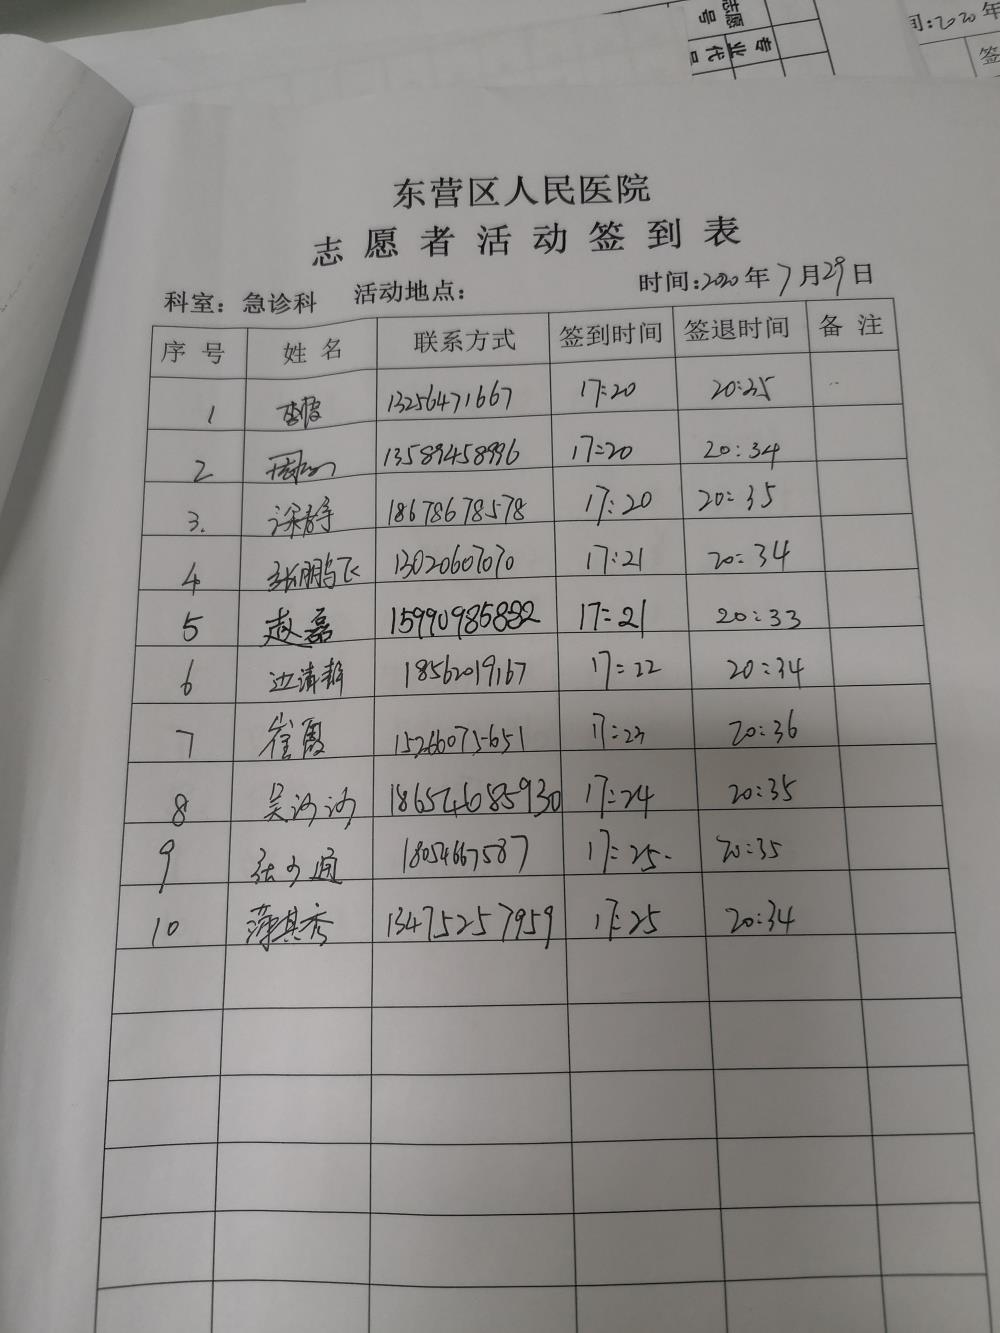 志愿
号
专业代
间:2020年
签
东营区人民医院
志愿者活动签到表
科室：急诊科 活动地点： 时间:2020年7月29日
序号 姓名 联系方式 签到时间 签退时间 备注
1 13256471667 17:20 20:35
2 13589458996 17:20 20:34
3. 梁静 18678678578 17:20 20:35
4 张鹏飞 13020607070 17:21 20:34
5 赵磊 15990985832 17:21 20:33
6 边清静 18562019167 17:22 20:34
7 崔霞 15266075651 17:23 20:36
8 吴沙沙 18654685930 17:24 20:35
9 张少通 18054667587 17:25 20:35
10 薄其秀 13475257959 17:25 20:34